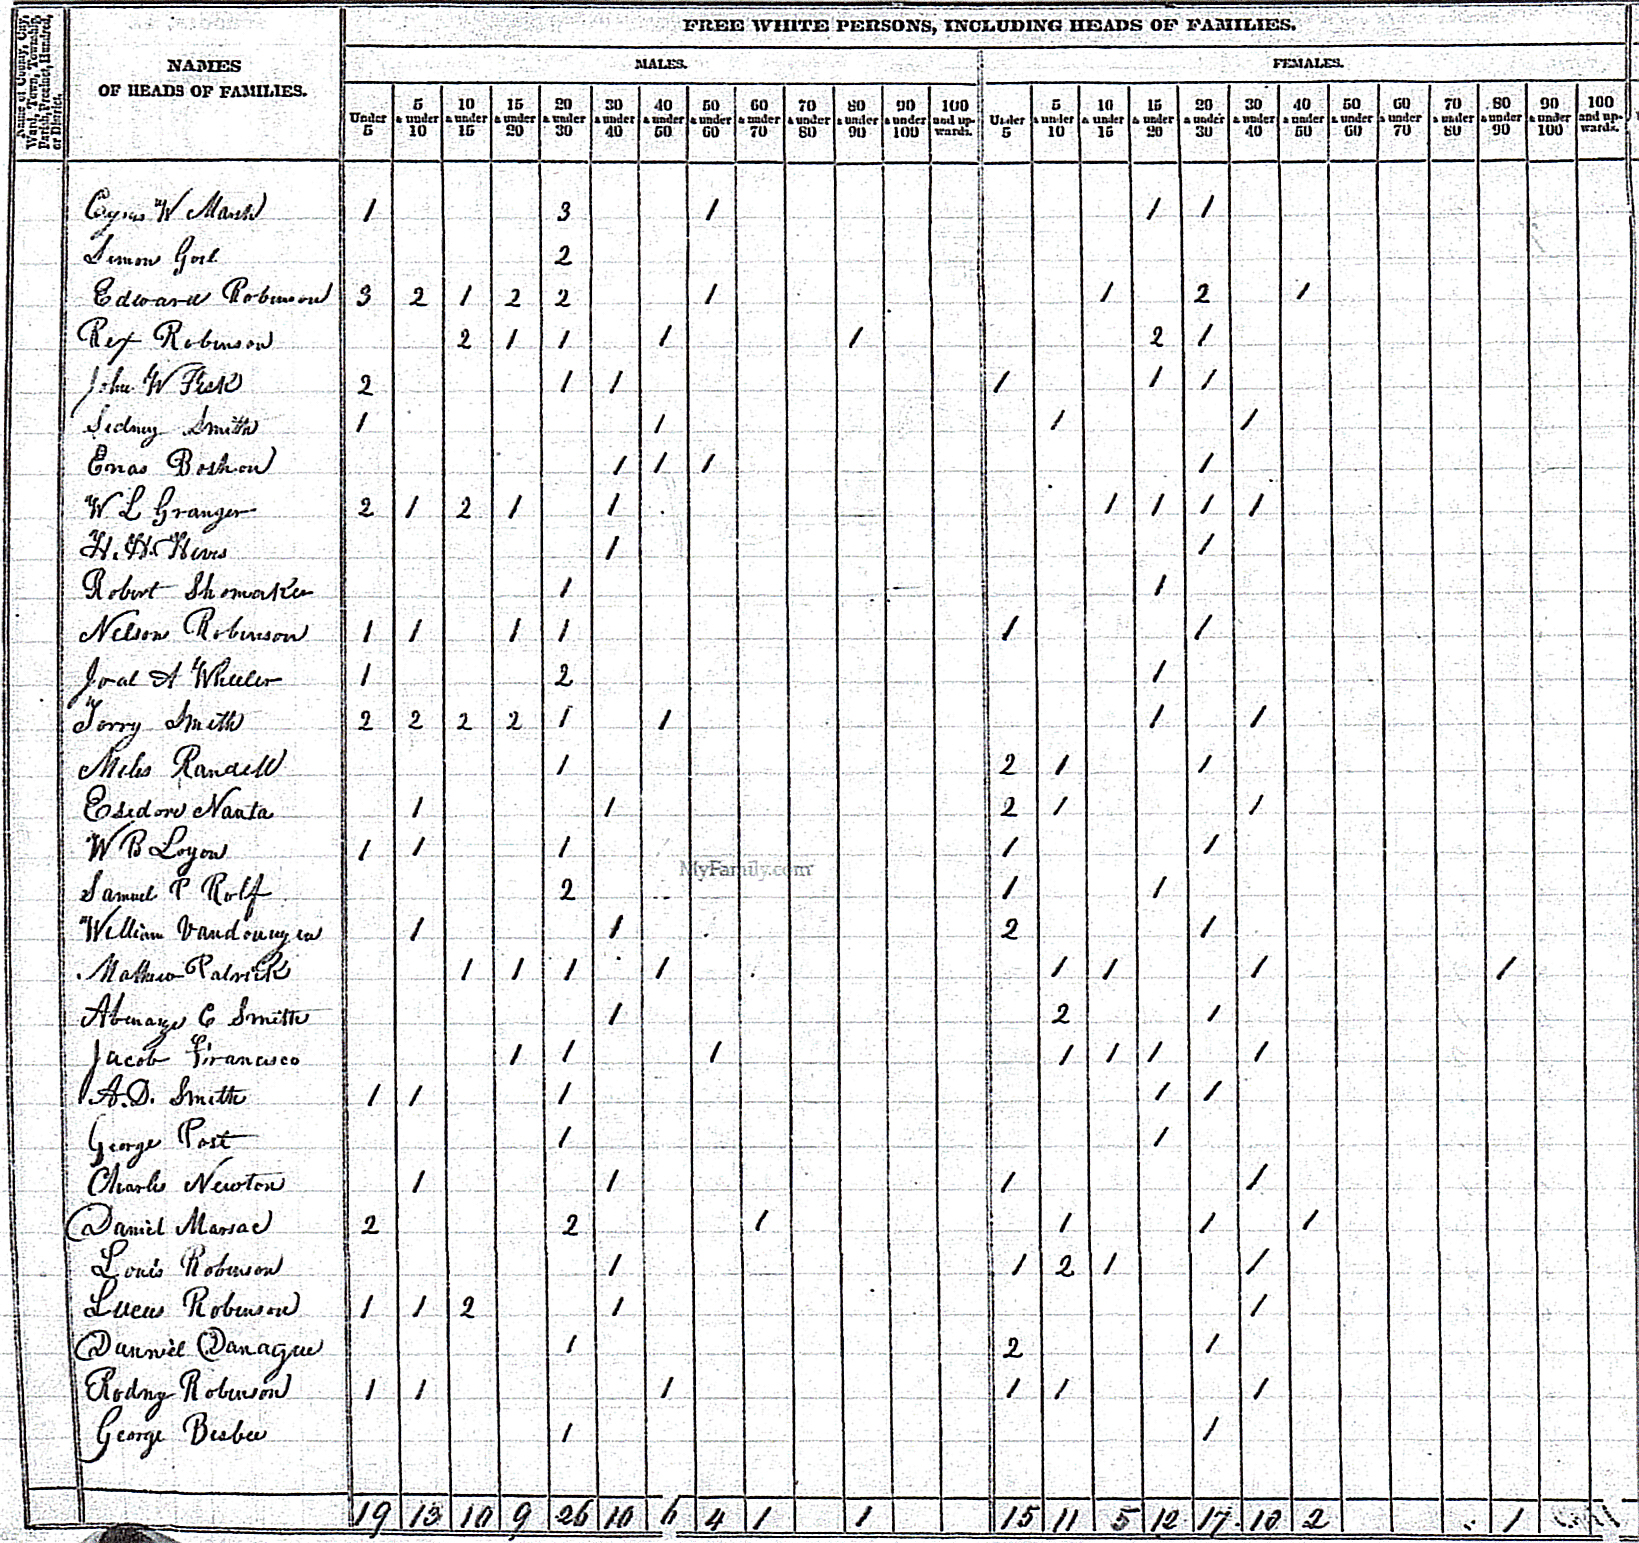 FREE WHITE PERSONS, INCLUDING HEADS OF FAMILIES.
Name of County, City, Ward, Town, Township, Parish, Precinct, Hundred, or District.
NAMES OF HEADS OF FAMILIES.
MALES. FEMALES.
Under 5 5 & under 10 10 & under 15 15 & under 20 20 & under 30 30 & under 40 40 & under 50 50 & under 60 60 & under 70 70 & under 80 80 & under 90 90 & under 100 100 and upwards. Under 5 5 & under 10 10 & under 15 15 & under 20 20 & under 30 30 & under 40 40 & under 50 50 & under 60 60 & under 70 70 & under 80 80 & under 90 90 & under 100 100 and upwards.
W Marsh 1 3 1 1 1
Simon 2
Edward Robinson 3 2 1 2 2 1 1 2 1
Rix Robinson 2 1 1 1 1 2 1
John W Fisk 2 1 1 1 1 1
Sidney Smith 1 1 1 1
1 1 1 1
W L Granger 2 1 2 1 1 1 1 1 1
H. H. 1 1
Robert Shomaker 1 1
Nelson Robinson 1 1 1 1 1 1
Joal A Wheeler 1 2 1
Torry Smith 2 2 2 2 1 1 1 1
Miles Randell 1 2 1 1
Esidore Nauta 1 1 2 1 1
W B Loyon 1 1 1 1 1
Samuel P Rolf 2 1 1
William 1 1 2 1
Mathew Patrick 1 1 1 1 1 1 1 1
C Smith 1 2 1
Jacob Francisco 1 1 1 1 1 1 1
A. D. Smith 1 1 1 1 1
George Post 1 1
Charls Newton 1 1 1 1
Daniel Marsac 2 2 1 1 1 1
Louis Robinson 1 1 2 1 1
Lucus Robinson 1 1 2 1 1
Danniel Danague 1 2 1
Rodny Robinson 1 1 1 1 1 1
George Bisbee 1 1
19 13 10 9 26 10 6 4 1 1 15 11 5 12 17 10 2 1
MyFamily.com